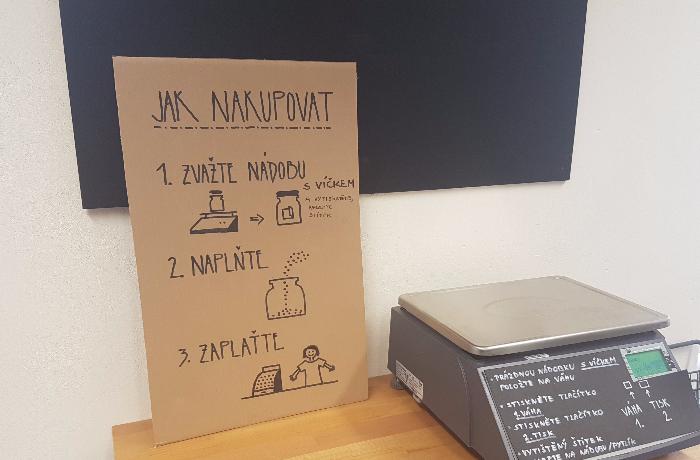 JAK NAKUPOVAT
1. ZVAŽTE NÁDOBU
S VÍČKEM
A VYTISKNĚTE,
NALEPTE
ŠTÍTEK
2. NAPLŇTE
3. ZAPLAŤTE
• PRÁZDNOU NÁDOBKU S VÍČKEM
POLOŽTE NA VÁHU
• STISKNĚTE TLAČÍTKO
1. VÁHA
• STISKNĚTE TLAČÍTKO
2. TISK
• VYTIŠTĚNÝ ŠTÍTEK
NA NÁDOBU/PYTLÍK
VÁHA TISK
1. 2.